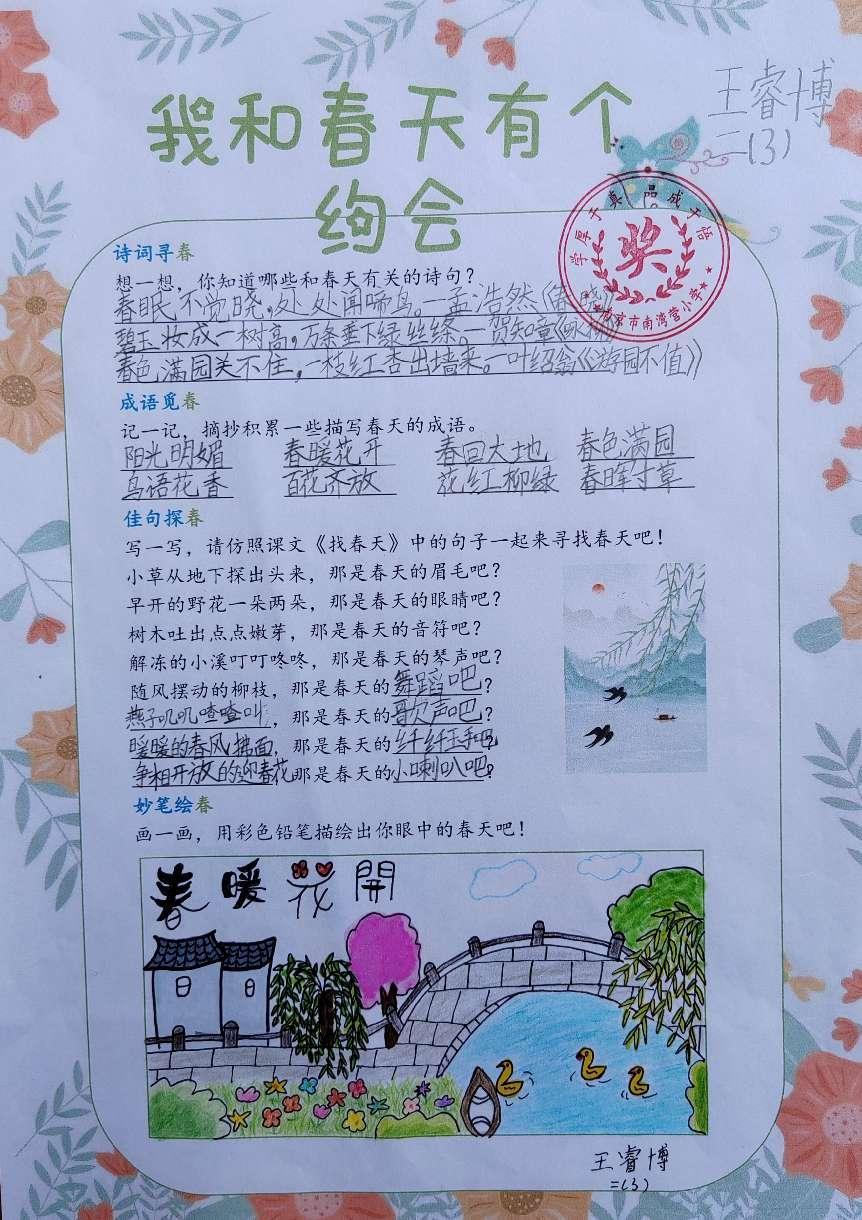 我和春天有个
约会
王睿博
二(3)
诗词寻春
想一想，你知道哪些和春天有关的诗句？
春眠不觉晓，处处闻啼鸟。—孟浩然《春晓》
碧玉妆成一树高，万条垂下绿丝绦。—贺知章《咏柳》
春色满园关不住，一枝红杏出墙来。—叶绍翁《游园不值》
奖
南京市南湾营小学
成语觅春
记一记，摘抄积累一些描写春天的成语。
阳光明媚 春暖花开 春回大地 春色满园
鸟语花香 百花齐放 花红柳绿 春晖寸草
佳句探春
写一写，请仿照课文《找春天》中的句子一起来寻找春天吧！
小草从地下探出头来，那是春天的眉毛吧？
早开的野花一朵两朵，那是春天的眼睛吧？
树木吐出点点嫩芽，那是春天的音符吧？
解冻的小溪叮叮咚咚，那是春天的琴声吧？
随风摆动的柳枝，那是春天的舞蹈吧？
燕子叽叽喳喳叫，那是春天的歌声吧？
暖暖的春风拂面，那是春天的纤纤玉手吧？
争相开放的迎春花那是春天的小喇叭吧？
妙笔绘春
画一画，用彩色铅笔描绘出你眼中的春天吧！
春暖花開
王睿博
二(3)